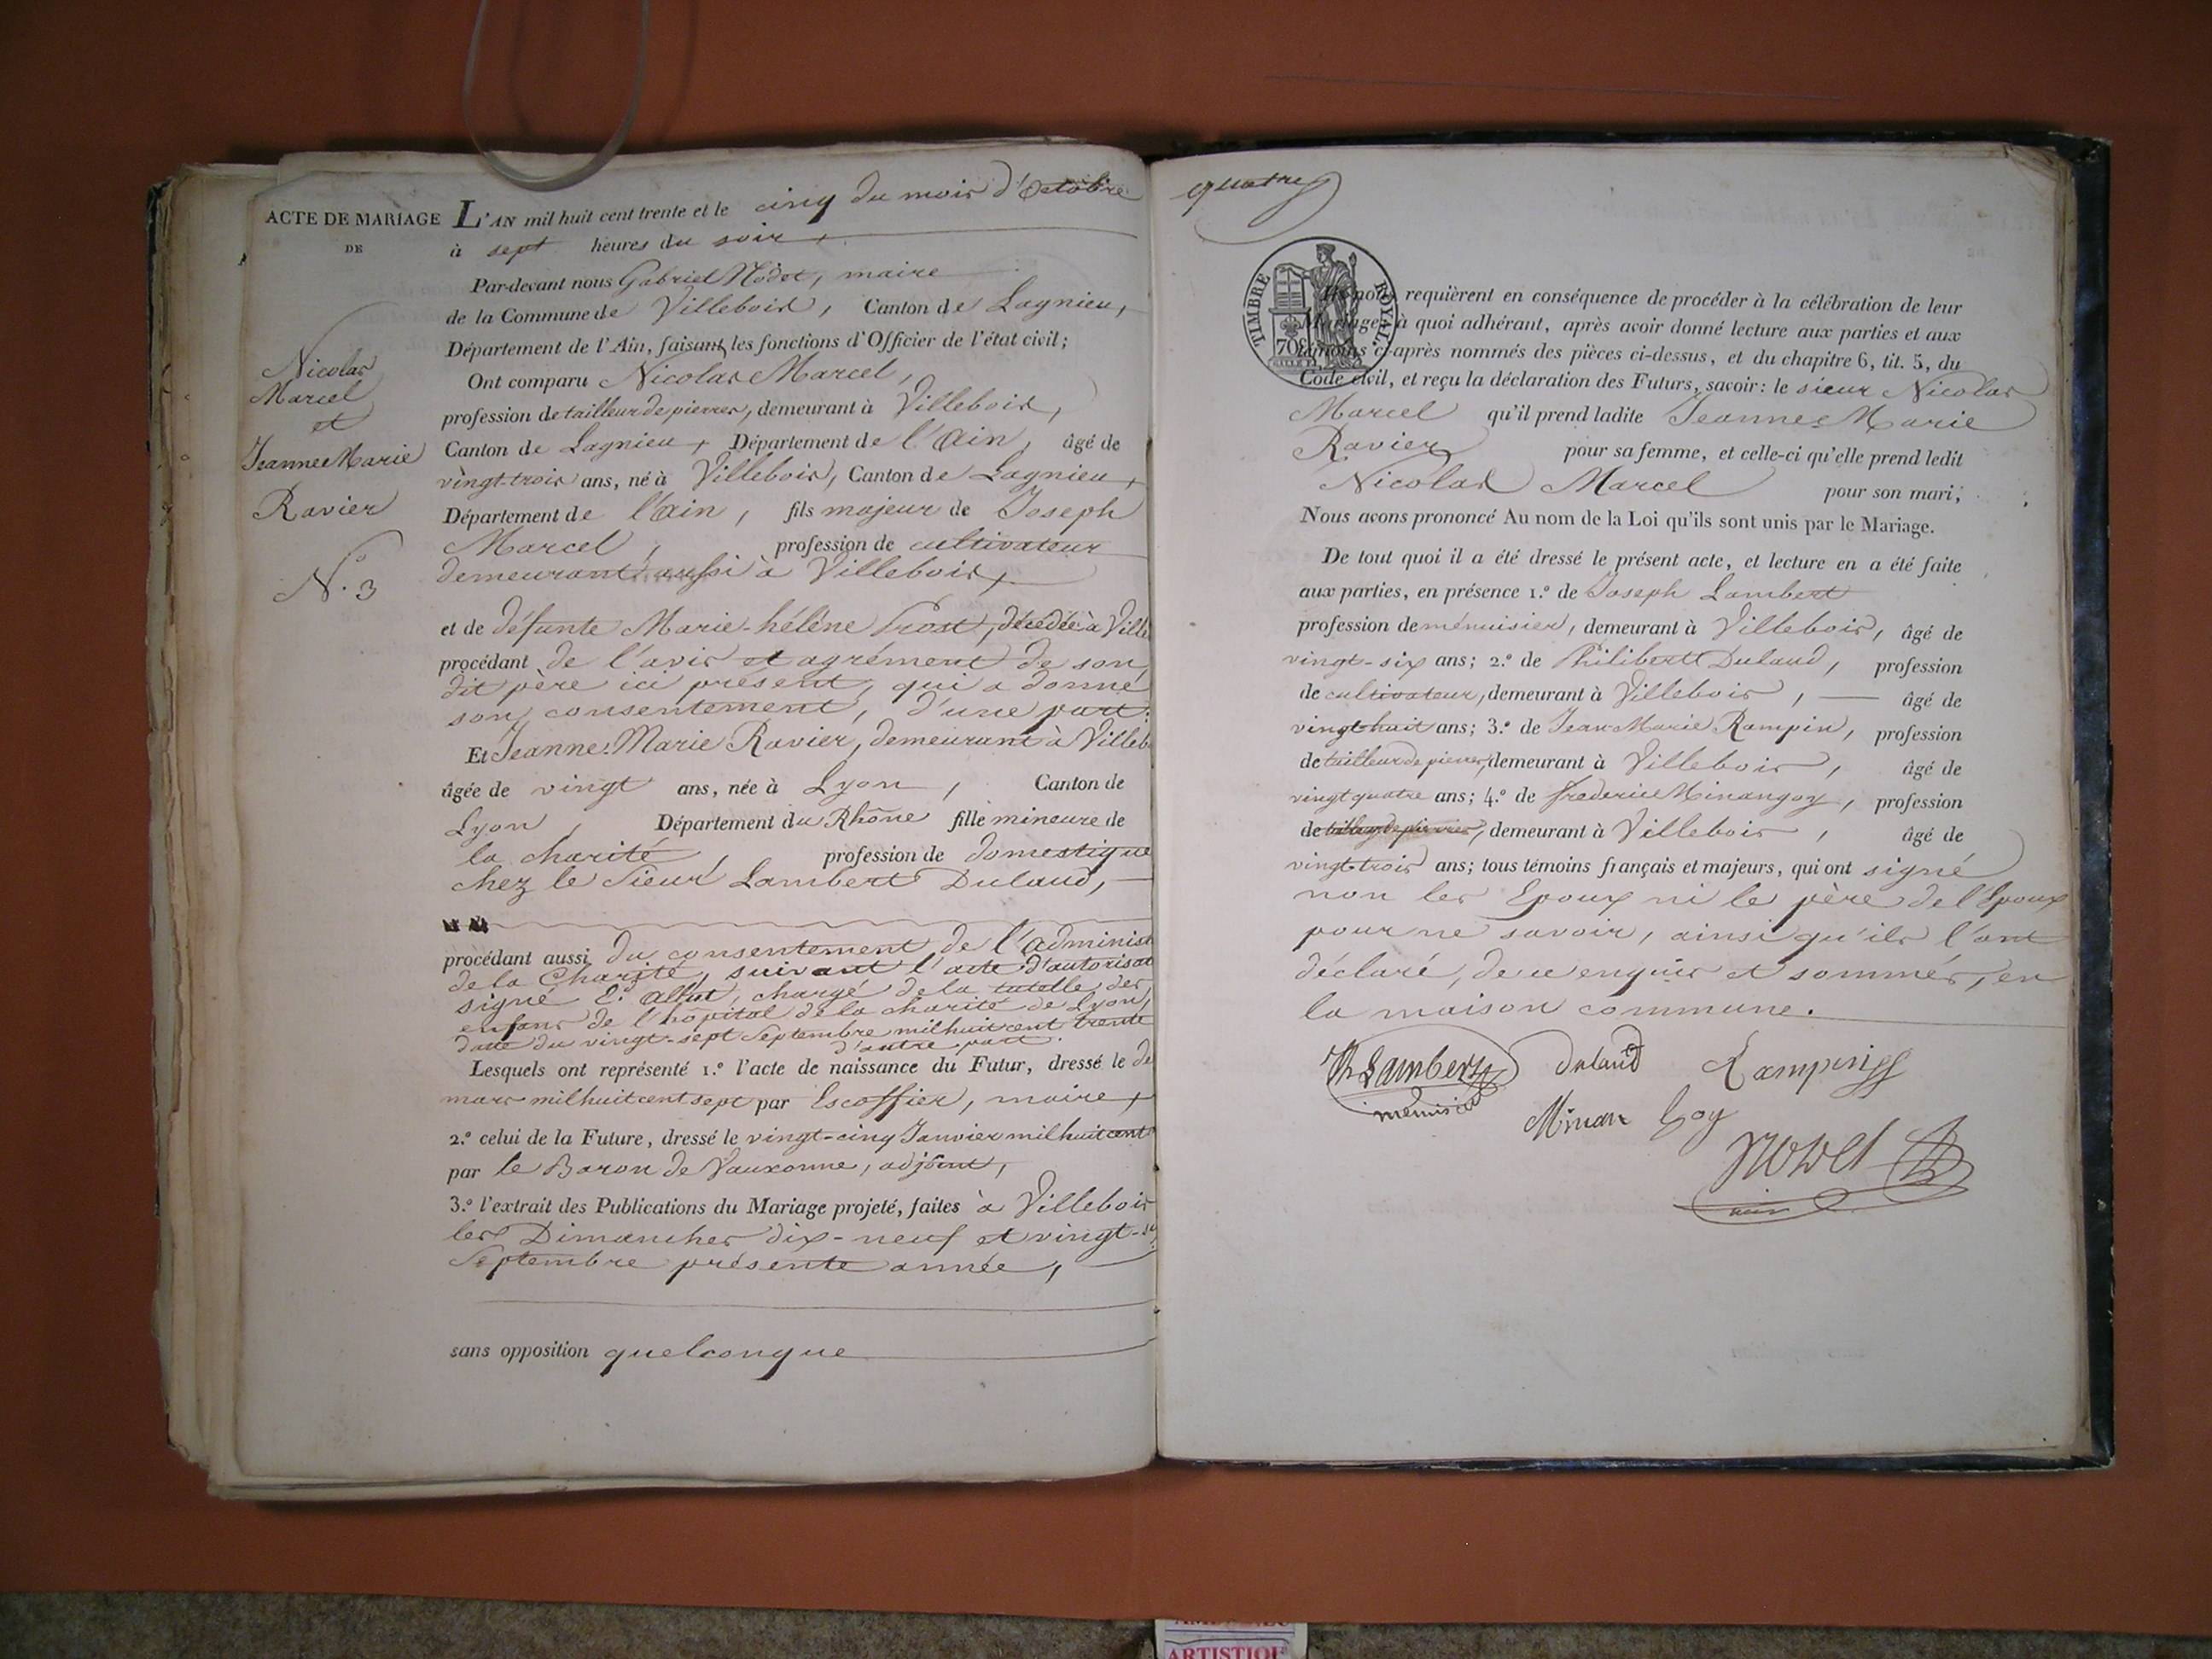 ACTE DE MARIAGE
DE
Nicolas
Marcel
et
Jeanne Marie
Ravier
N.º 3
L'AN mil huit cent trente et le cinq du mois d'Octobre
à sept heures du soir,
Par-devant nous Gabriel Nodet, maire
de la Commune de Villebois, Canton de Lagnieu,
Département de l'Ain, faisant les fonctions d'Officier de l'état civil;
Ont comparu Nicolas Marcel,
profession de tailleur de pierres, demeurant à Villebois,
Canton de Lagnieu, Département de l'Ain, âgé de
vingt-trois ans, né à Villebois, Canton de Lagnieu,
Département de l'Ain, fils majeur de Joseph
Marcel, profession de cultivateur
demeurant aussi à Villebois,
et de défunte Marie-hélène Prost, décédée à Ville
procédant de l'avis et agrément de son
dit père ici présent, qui a donné
son consentement, d'une part.
Et Jeanne-Marie Ravier, demeurant à Villeb
âgée de vingt ans, née à Lyon, Canton de
Lyon, Département du Rhône fille mineure de
la charité, profession de domestique
chez le Sieur Lambert Dulaud,
procédant aussi du consentement de l'administ
de la Charité, suivant l'acte d'autorisat
signé chargé de la tutelle des
enfans de l'hôpital de la charité de Lyon,
datte du vingt-sept Septembre mil huit cent trente
d'autre part.
Lesquels ont représenté 1.º l'acte de naissance du Futur, dressé le
mars mil huit cent sept par Escoffier, maire,
2.º celui de la Future, dressé le vingt-cinq Janvier mil huit cent
par le Baron de Vauxonne, adjoint,
3.º l'extrait des Publications du Mariage projeté, faites à Villebois
les Dimanches dix-neuf et vingt-
Septembre présente année,
sans opposition quelconque
quatre
TIMBRE ROYAL
70
Ils nous requièrent en conséquence de procéder à la célébration de leur
Mariage, à quoi adhérant, après avoir donné lecture aux parties et aux
témoins ci-après nommés des pièces ci-dessus, et du chapitre 6, tit. 5, du
Code civil, et reçu la déclaration des Futurs, savoir: le sieur Nicolas
Marcel qu'il prend ladite Jeanne-Marie
Ravier pour sa femme, et celle-ci qu'elle prend ledit
Nicolas Marcel pour son mari;
Nous avons prononcé Au nom de la Loi qu'ils sont unis par le Mariage.
De tout quoi il a été dressé le présent acte, et lecture en a été faite
aux parties, en présence 1.º de Joseph Lambert
profession de ménuisier, demeurant à Villebois, âgé de
vingt-six ans; 2.º de Philibert Dulaud, profession
de cultivateur, demeurant à Villebois, âgé de
vingt-huit ans; 3.º de Jean-Marie Rampin, profession
de tailleur de pierres, demeurant à Villebois, âgé de
vingt quatre ans; 4.º de frederic Minangoy, profession
de tailleur de pierres, demeurant à Villebois, âgé de
vingt-trois ans; tous témoins français et majeurs, qui ont signé
non les Epoux ni le père de l'Epoux
pour ne savoir, ainsi qu'ils l'ont
déclaré, de ce enquis et sommés, en
la maison commune.
Lambert
menuisier
dulaud
Rampin
Minan Goy
Nodet
ARTISTIQU